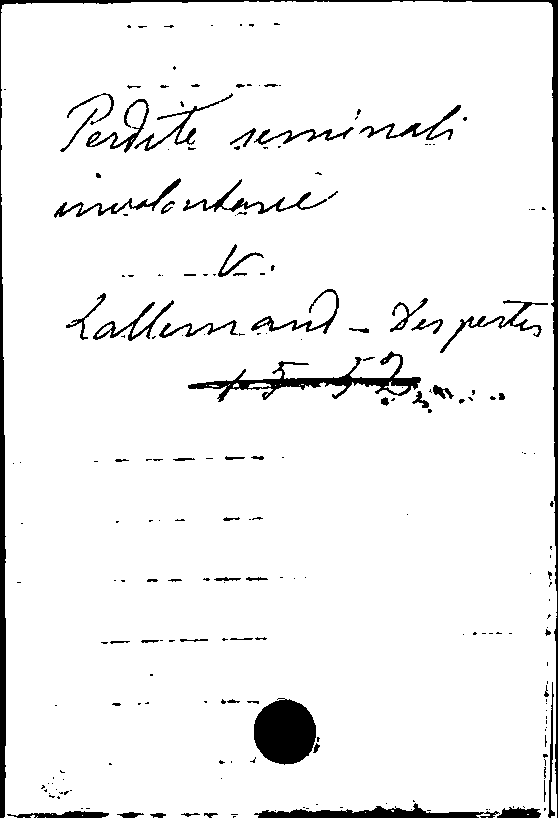 Perdite seminali
involontarie
V.
Lallemand - Des pertes
15 52